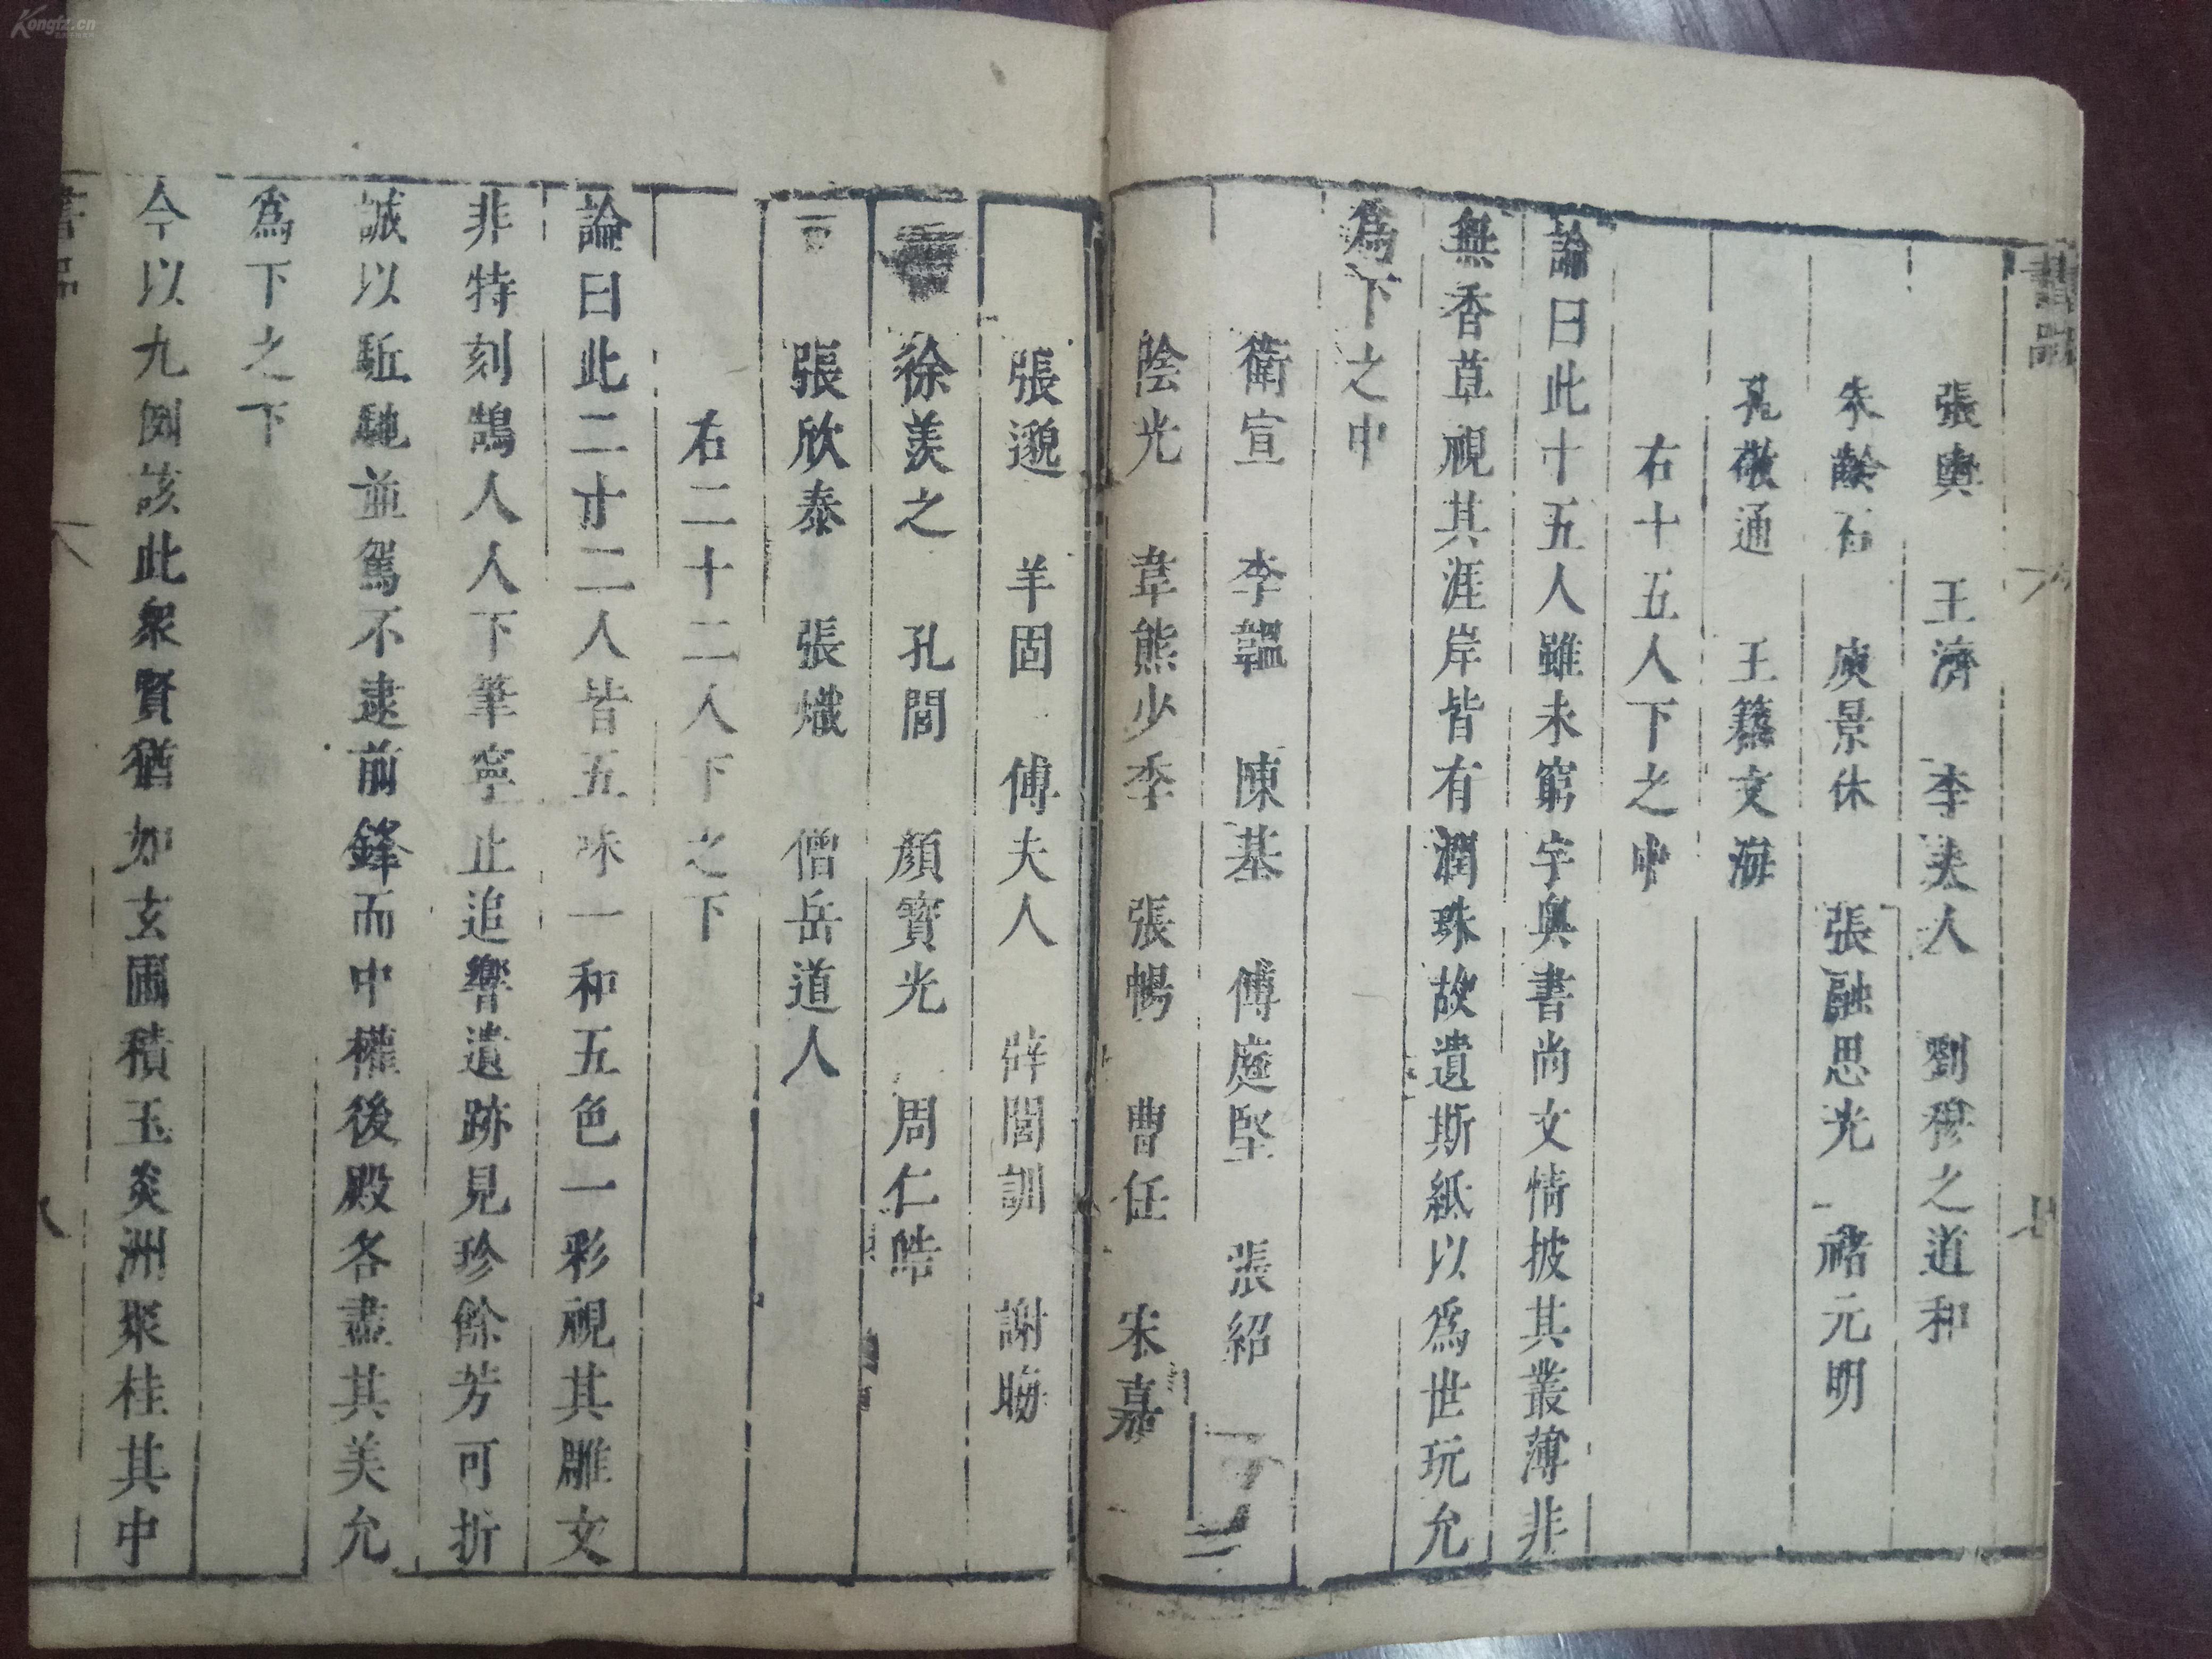 書品
張輿　王濟　李夫人　劉穆之道和
朱齡石　庾景休　張融思光　褚元明
孔敬通　王籍文海
右十五人下之中
論曰此十五人雖未窮字奥書尚文情披其叢薄非
無香草視其涯岸皆有潤珠故遺斯紙以爲世玩允
爲下之中
衛宣　李韞　陳基　傅庭堅　張紹
陰光　韋熊少季　張暢　曹任　宋嘉
張邈　羊固　傅夫人　辟閭訓　謝晦
徐羨之　孔閭　顏寶光　周仁皓
張欣泰　張熾　僧岳道人
右二十二人下之下
論曰此二十二人皆五味一和五色一彩視其雕文
非特刻鵠人人下筆寧止追響遺跡見珍餘芳可折
誠以駈馳並駕不逮前鋒而中權後殿各盡其美允
爲下之下
今以九例該此衆賢猶如玄圃積玉炎洲聚桂其中
書品
Kongfz.cn